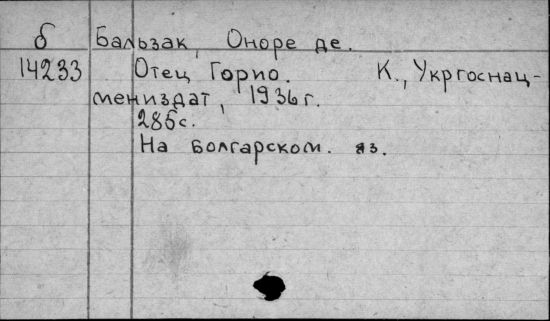 б Бальзак, Оноре де.
14233 Отец Горио. К., Укргоснац-
мениздат, 1936 г.
285 с.
На болгарском. яз.